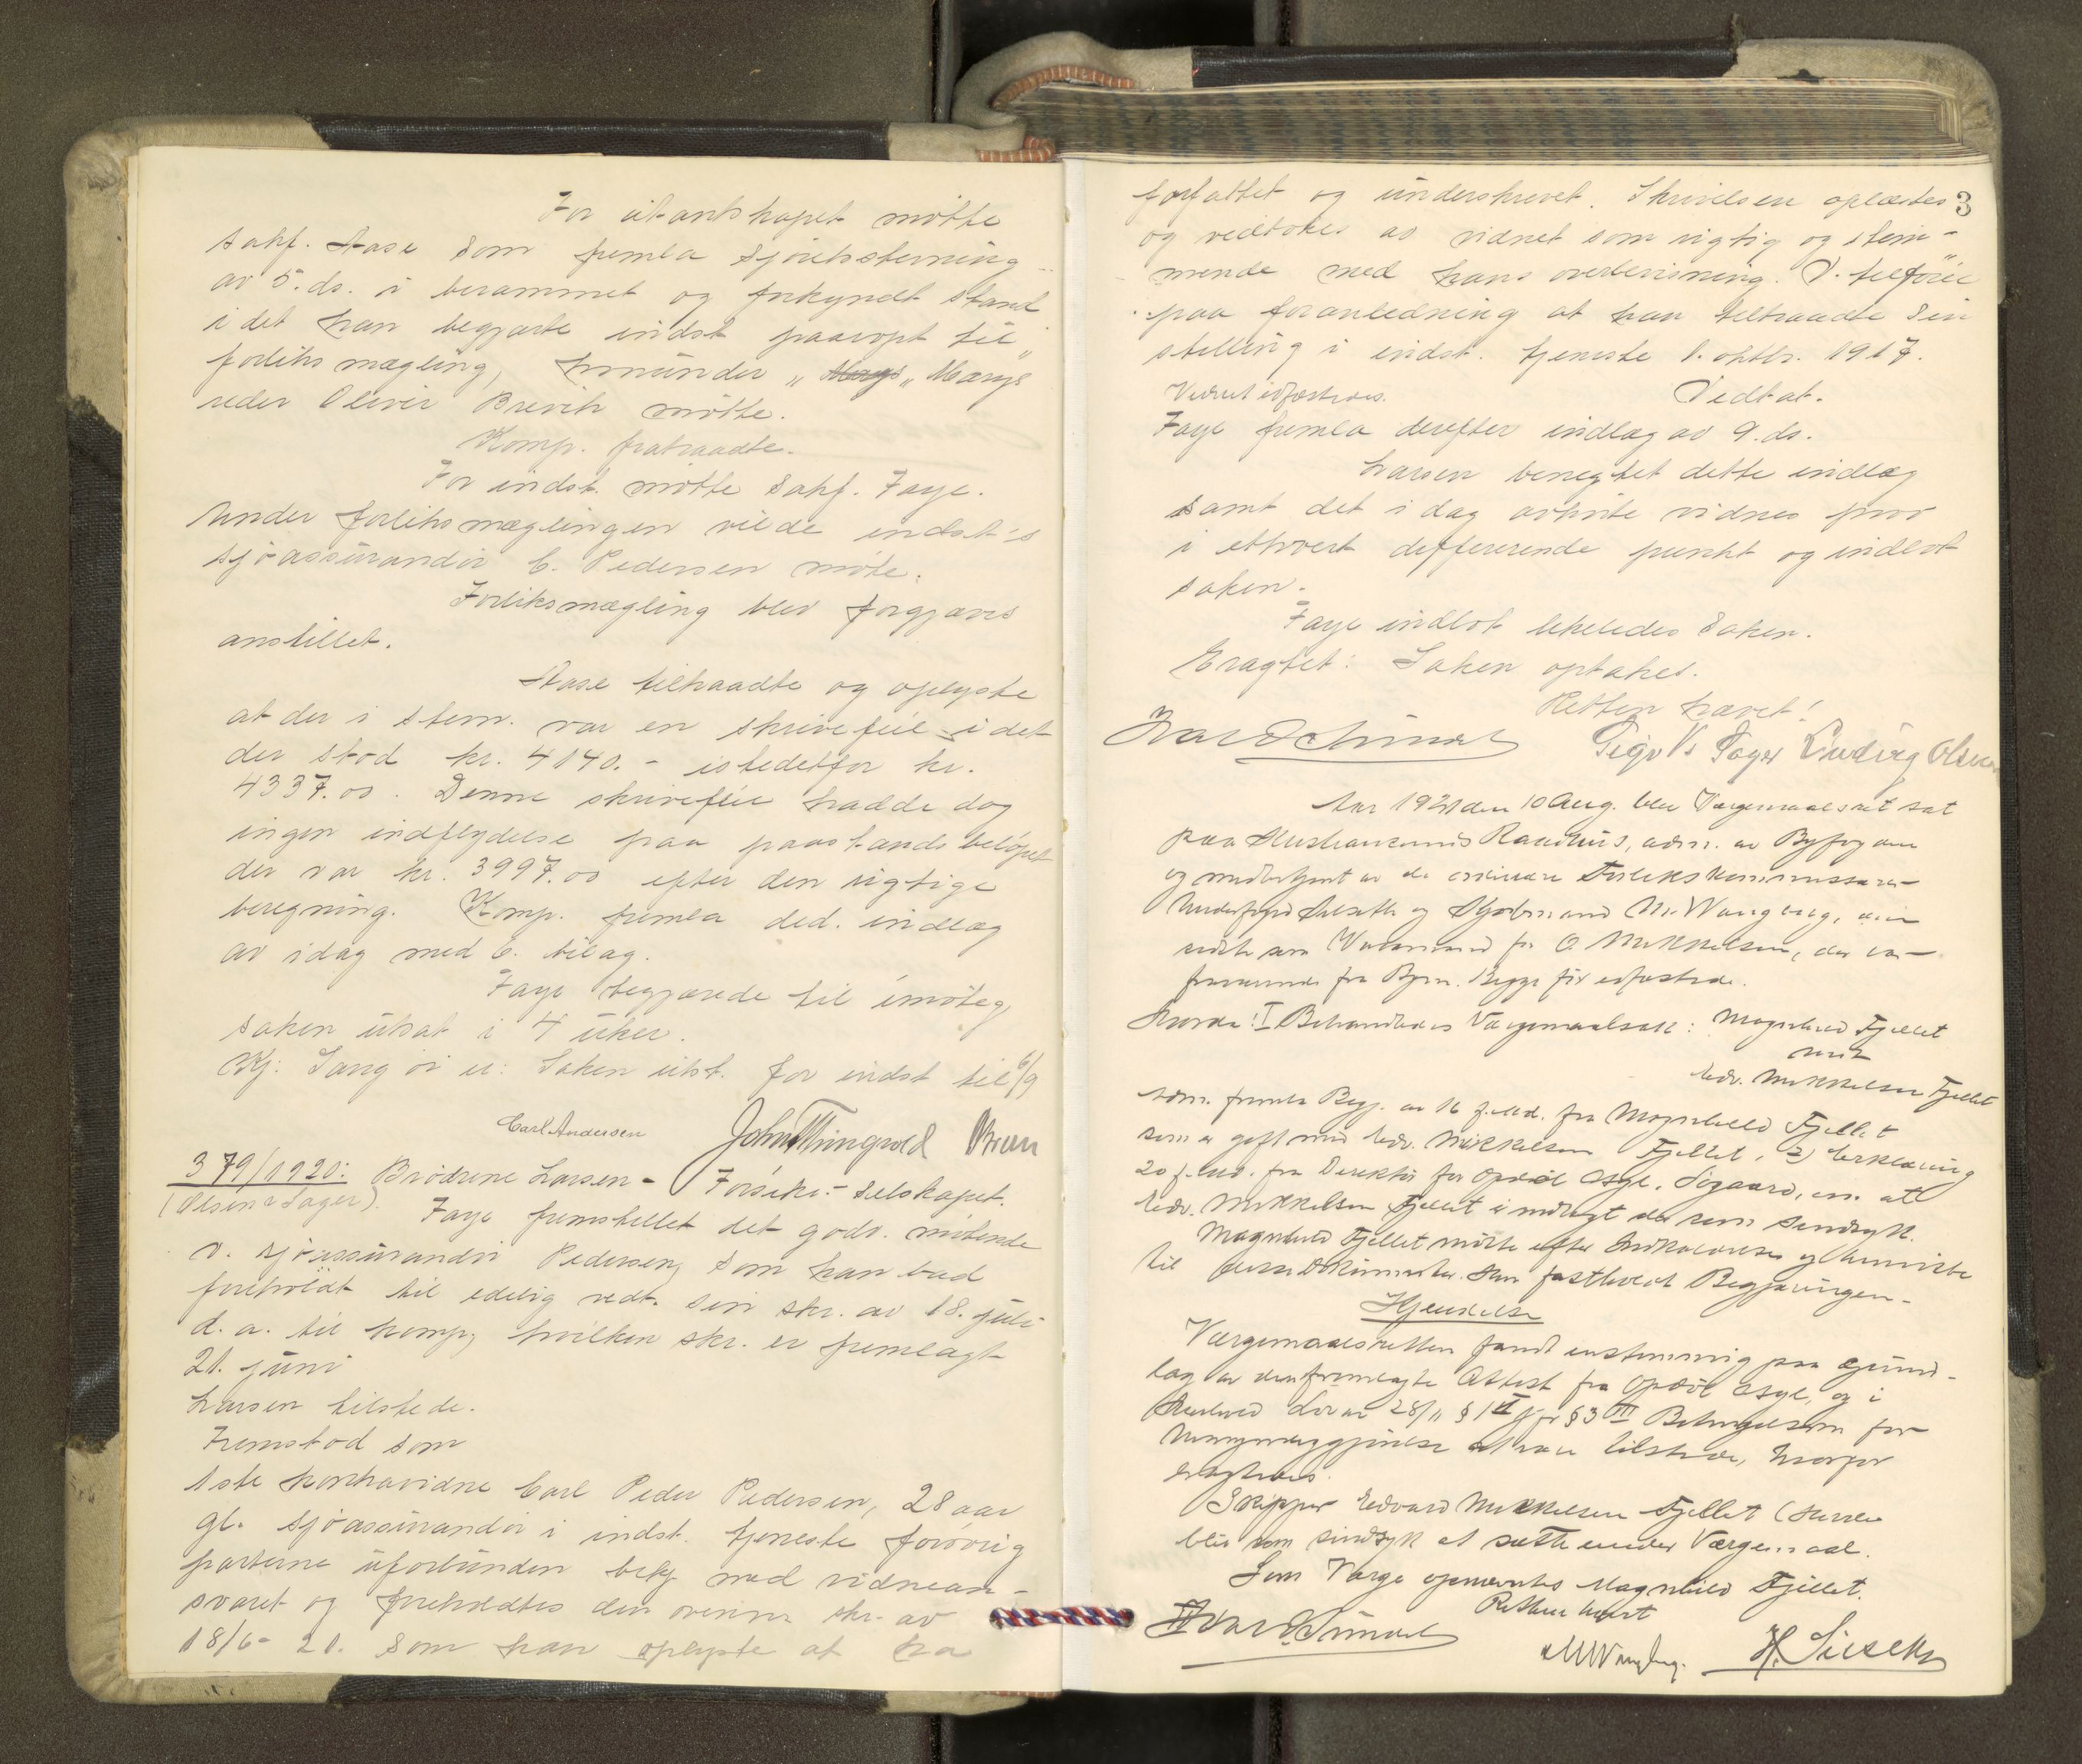 For citantskapet møtte
sakf. Aase som femla sjøretsstevning
av 5. ds. i berammet og forkyndt stand
i det han begjærte indst. paaropt til
forliksmægling, hvorunder „Marys"
reder Oliver Brevik møtte.
Komp. fratraadte.
For indst. møtte sakf. Faye.
Under forliksmæglingen vilde indst's
sjøassurandør C. Pedersen møte.
Forliksmægling blev forgjæves
anstillet.
Aase tiltraadte og oplyste
at der i stevn. var en skrivefeil i det
der stod kr. 4140.- istedetfor kr.
4337.00. Denne skrivefeil hadde dog
ingen indflydelse paa paastandsbeløpet
der var kr. 3997.00 efter den rigtige
beregning. Komp. fremla ded. indlæg
av idag med 6. bilag.
Faye begjærede til imøteg.
saken utsat i 4 uker.
Kj: Saken utst. for indst til 6/9
Carl Andersen John Thingvold
379/1920: Brødrene Larsen - Forsikr.- selskapet.
(Olsen & Sager). Faye fremstillet det godv. møtende
v. sjøassurandør Pedersen, som han bad
foreholdt til edelig vedt. sin skr. av 18. juli
d. a. til komp, hvilken skr. er fremlagt
21. juni
Larsen tilstede.
Fremstod som
1ste kontravidne Carl Peder Pedersen, 28 aar
gl. sjøassurandør i indst. tjeneste forøvrig
parterne uforbunden bekj. med vidnean-
svaret og foreholdtes den ovenn. skr. av
18/6- 21. som han oplyste at ha
3
forfattet og underskrevet. Skrivelsen oplæstes
og vedtokes av vidnet som rigtig og stem-
mende med hans overbevisning. V. tilføiet
paa foranledning at han tiltraadte sin
stilling i indst. tjeneste 1. oktbr. 1917.
Vidnet edfæstedes. Vedtat.
Faye fremla derefter indlæg av 9. ds.
Larsen benegtet dette indlæg
samt det i dag avhørte vidnes prov
i ethvert differerende punkt og indlot
saken.
Faye indlot likeledes saken.
Eragtet: Saken optakes.
Retten hævet!
Ludvig Olsen
Aar 1921 den 10 Aug. blev Værgemaalsret sat
paa Kristiansunds Raadhus, adm. av Byfogden
og medbetjent av de ordinære Forlikskommissærer
O. Mikkelsen, der var
fraværende fra Byen. Begge før edfæstede.
I Behandledes Værgemaalssak: Magnhild Fjellet
mot
Edv. Mikkelsen Fjellet
Adm. fremla Begj. av 16 f.Md. fra Magnhild Fjellet
som er gift med Edv. Mikkelsen Fjellet, 2) Erklæring
20 f. Md. fra Direktør for Opdøl Asyl, Søgaard, om at
Edv. Mikkelsen Fjellet er indlagt der som sindssyk.
Magnhild Fjellet møtte efter Indkaldelse og henviste
til disse Dokumenter. Hun fastholdt Begjæringen.
Kjendelse
Værgemaalsretten fandt enstemmig paa Grund-
lag av den fremlagte Attest fra Opdøl Asyl, og i
Henhold Lov av 28/11 § 1 jfr § 3 III Betingelsen for
Umyndiggjørelse at være tilstede, hvorfor
eragtedes.
Skipper Edvard Mikkelsen Fjellet
blir som sindssyk at sætte under Værgemaal.
Som Værge opnævntes Magnhild Fjellet.
Retten hævet